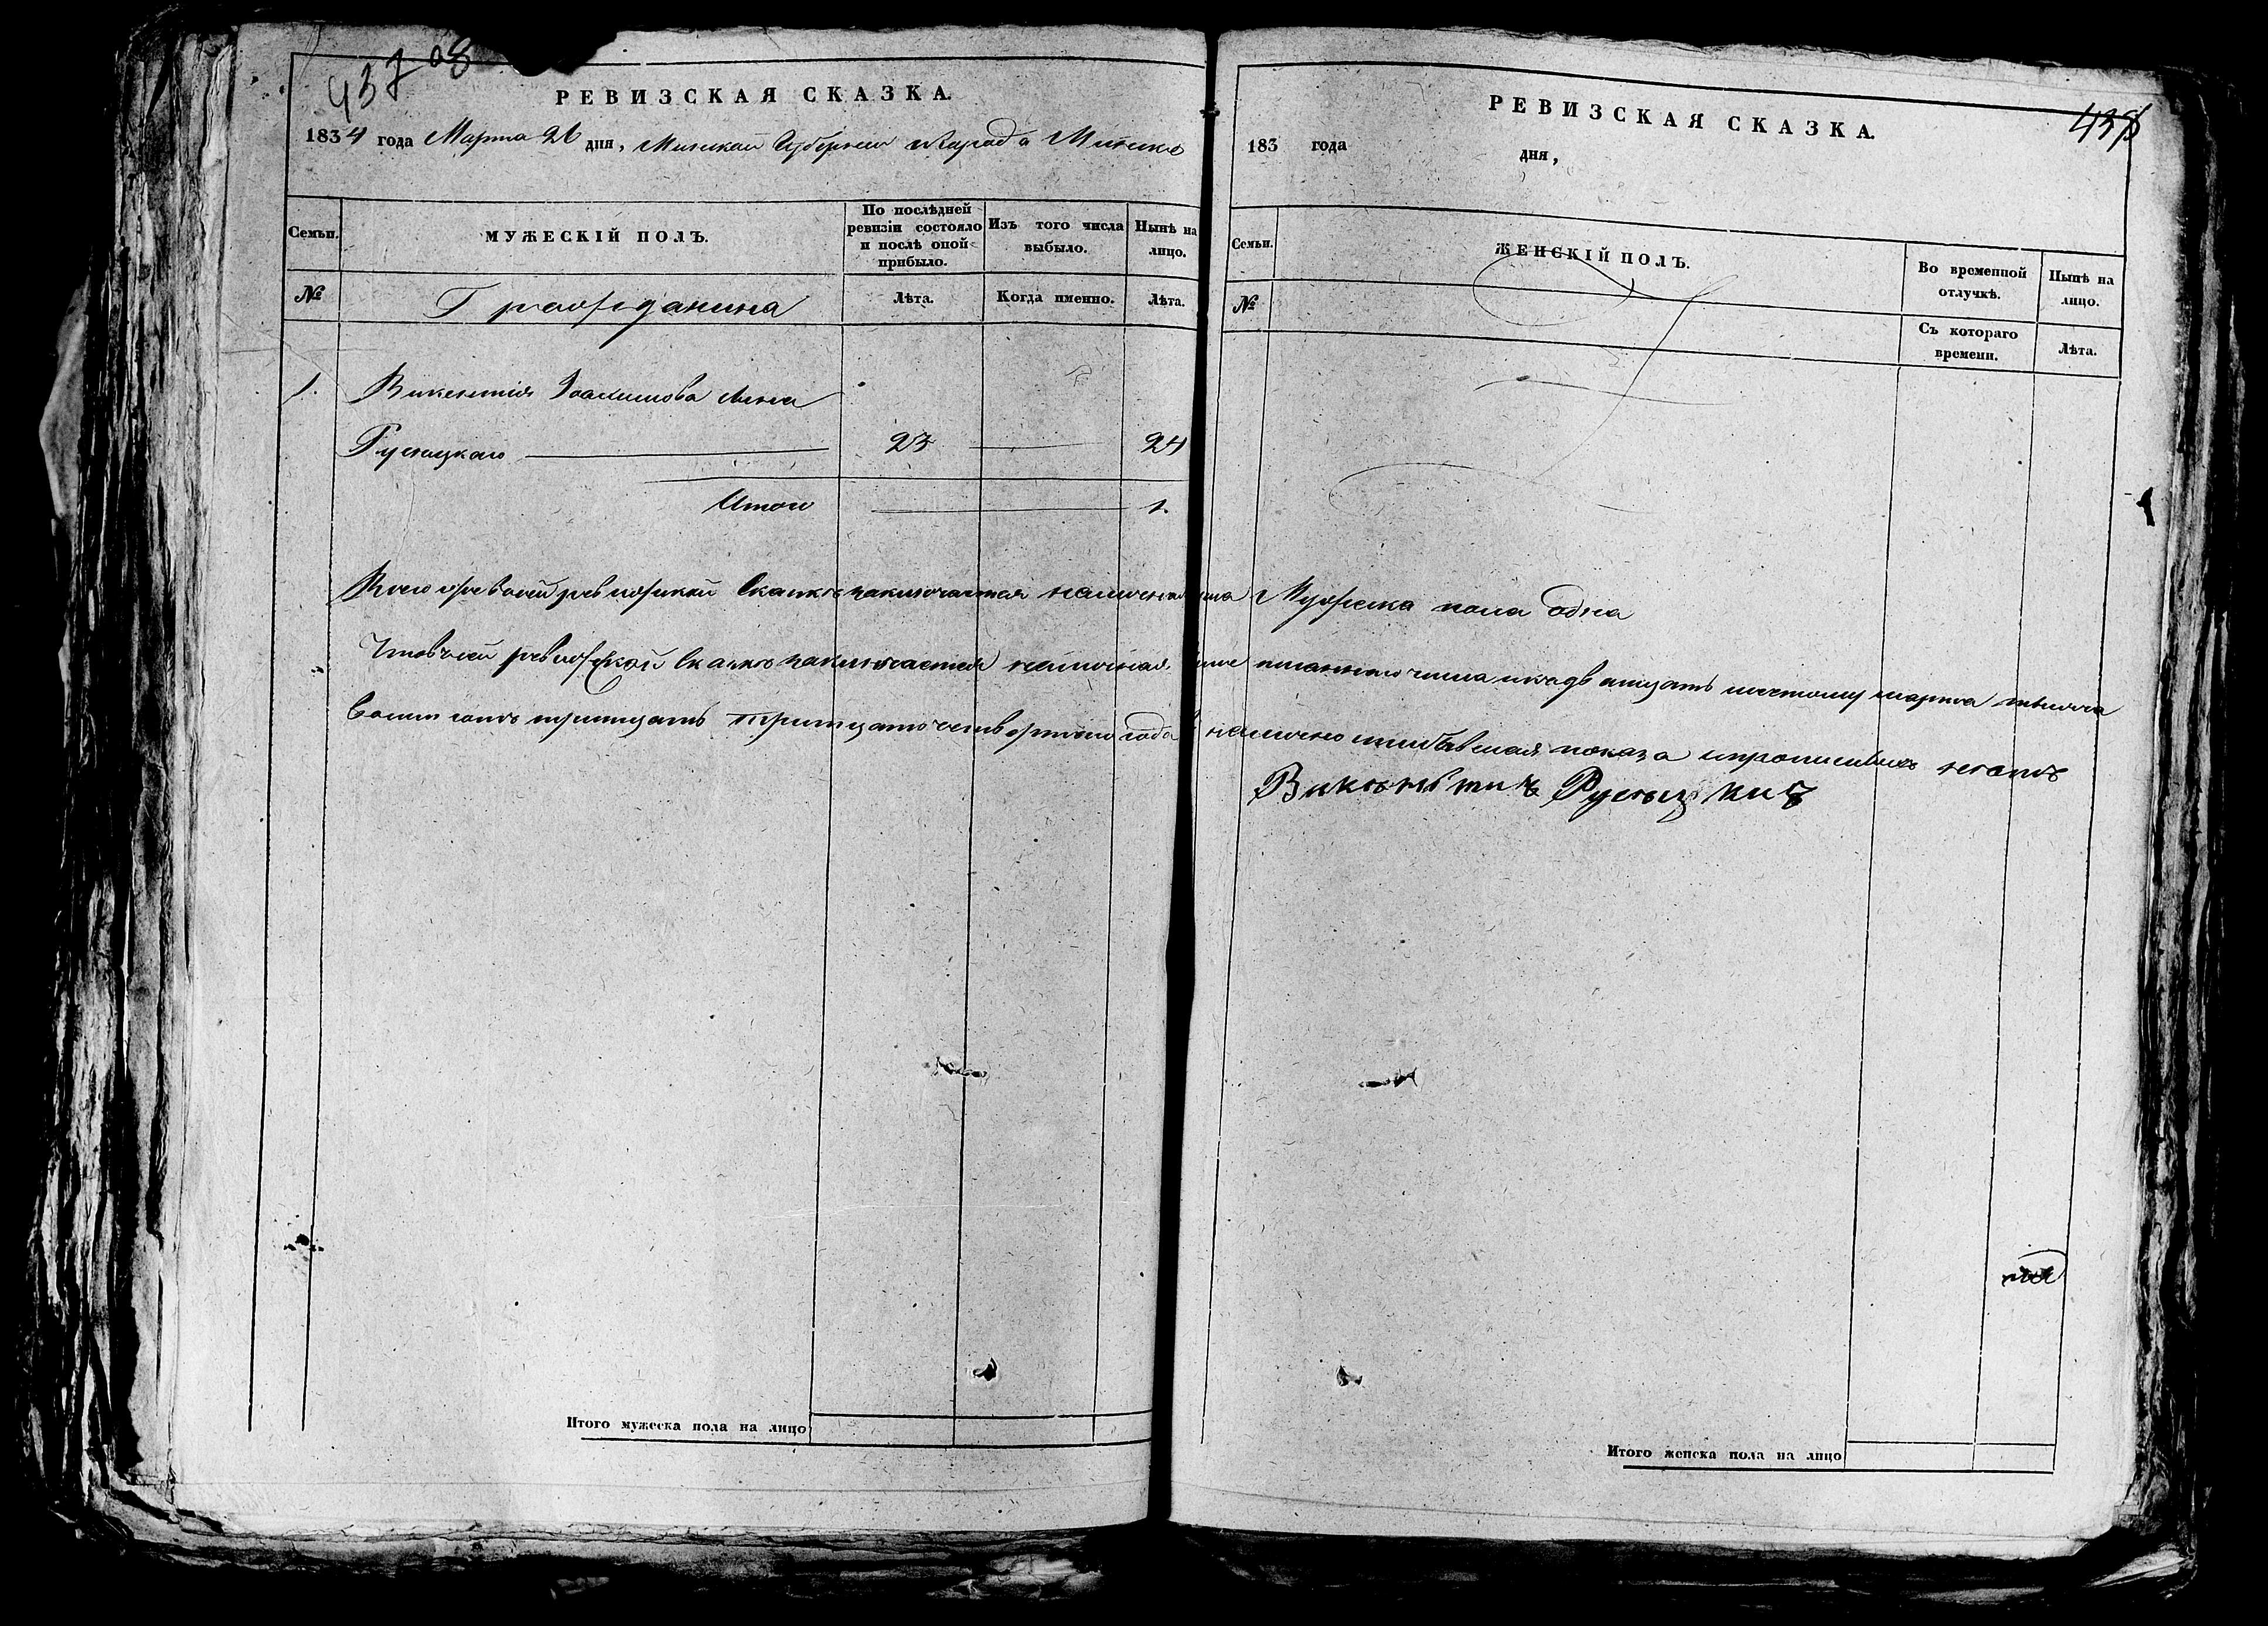 437 об
РЕВИЗСКАЯ СКАЗКА.
1834 года Марта 26 дня, Минской Губернии Города Минска
Семьи.
МУЖЕСКІЙ ПОЛЪ.
По послѣдней ревизіи состояло и послѣ оной прибыло.
Изъ того числа выбыло.
Нынѣ на лицо.
№
Гражданина
Лѣта.
Когда именно.
Лѣта.
1. Викентія Іоахимова сына
Русецкаго 23 24
Итого 1.
Всего въ сей ревизской Сказкѣ заключается наличная душа Мужеска пола одна
Что въ сей ревизской Сказкѣ заключается наличная писаннаго числа дватцать шестому марта тысяча
восемь сотъ тритцать четвертаго года показа
Викентий Русецкий
Итого мужеска пола на лицо
438
РЕВИЗСКАЯ СКАЗКА.
183 года дня,
Семьи.
ЖЕНСКІЙ ПОЛЪ.
Во временной отлучкѣ.
Нынѣ на лицо.
№
Съ котораго времени.
Лѣта.
Итого женска пола на лицо